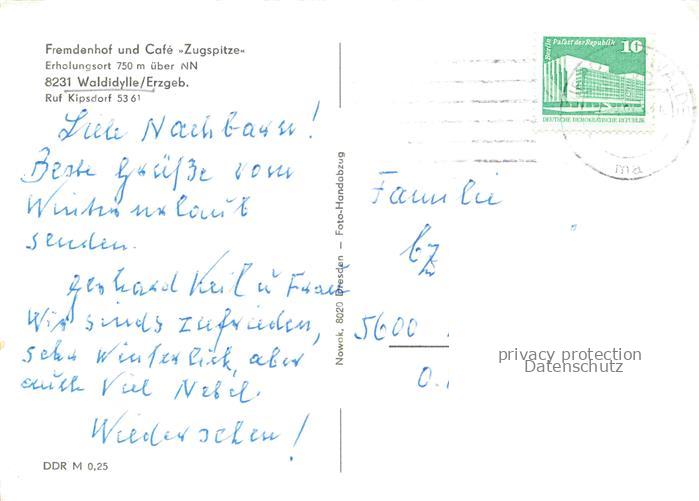 Fremdenhof und Café »Zugspitze«
Erholungsort 750 m über NN
8231 Waldidylle/Erzgeb.
Ruf Kipsdorf 53 61
Liebe Nachbarn!
Beste Grüße vom
Winterurlaub
senden.
Gerhard Keil u Frau
Wir sinds zufrieden,
sehr Winterlich, aber
auch viel Nebel.
Wiedersehen!
DDR M 0,25
Nowak, 8020 Dresden – Foto-Handabzug
Berlin Palast der Republik
16
DEUTSCHE DEMOKRATISCHE REPUBLIK
ma
Familie
5600
privacy protection
Datenschutz